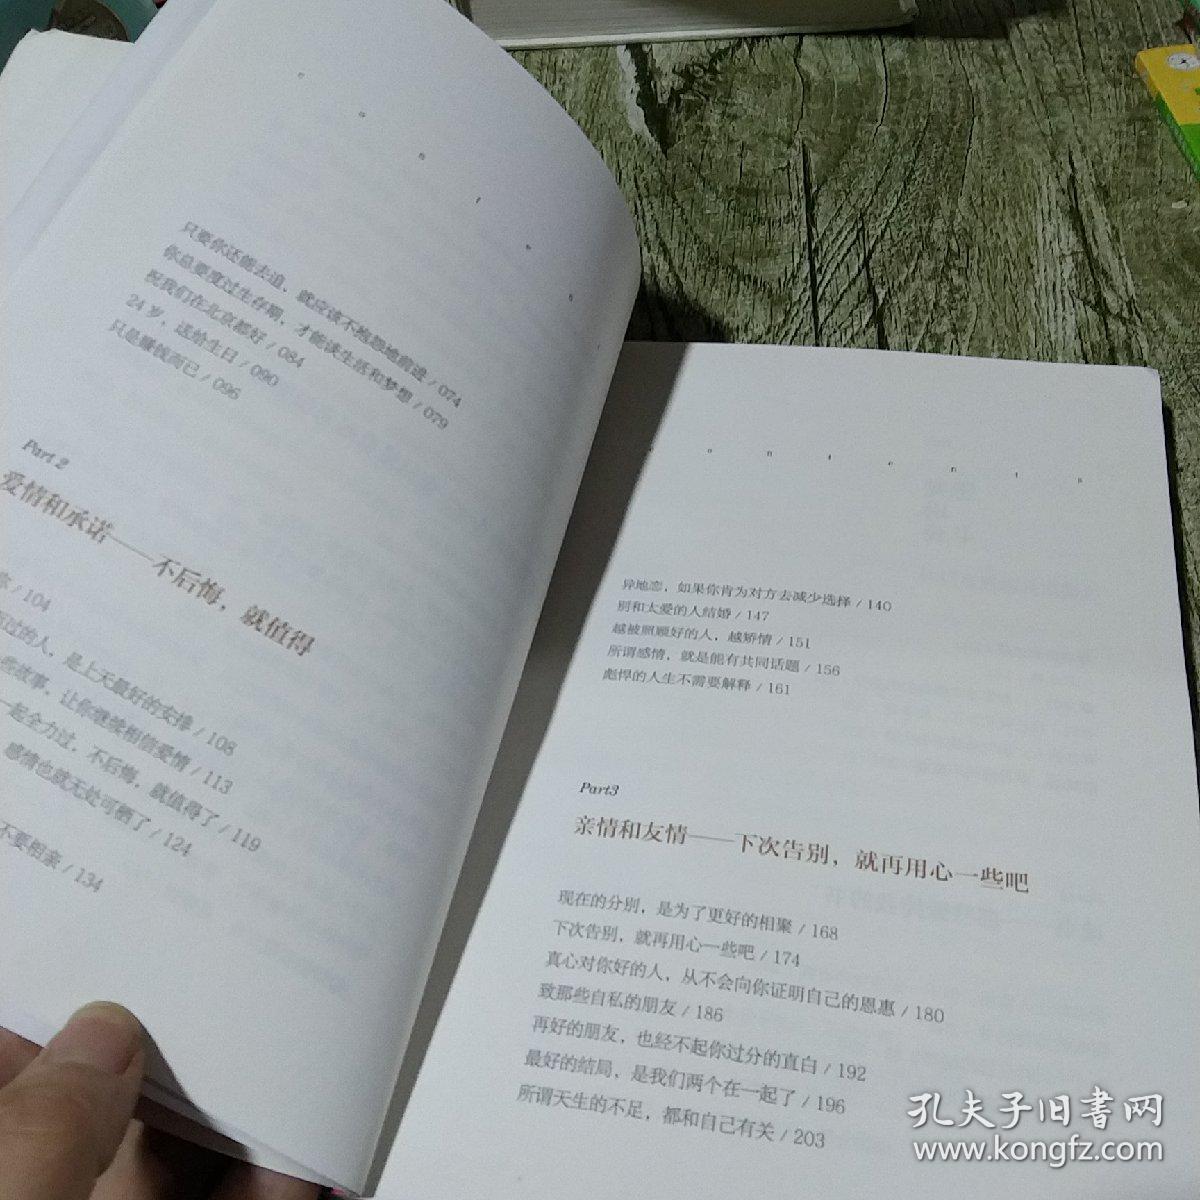 只要你还能去追，就应该不抱怨地前进 / 074
你总要度过生存期，才能谈生活和梦想 / 079
祝我们在北京都好 / 084
24 岁，送给生日 / 090
只是赚钱而已 / 096
Part 2
爱情和承诺——不后悔，就值得
/ 104
过的人，是上天最好的安排 / 108
些故事，让你继续相信爱情 / 113
一起全力过，不后悔，就值得了 / 119
感情也就无处可栖了 / 124
不要相亲 / 134
o n t e n t s
异地恋，如果你肯为对方去减少选择 / 140
别和太爱的人结婚 / 147
越被照顾好的人，越矫情 / 151
所谓感情，就是能有共同话题 / 156
彪悍的人生不需要解释 / 161
Part3
亲情和友情——下次告别，就再用心一些吧
现在的分别，是为了更好的相聚 / 168
下次告别，就再用心一些吧 / 174
真心对你好的人，从不会向你证明自己的恩惠 / 180
致那些自私的朋友 / 186
再好的朋友，也经不起你过分的直白 / 192
最好的结局，是我们两个在一起了 / 196
所谓天生的不足，都和自己有关 / 203
孔夫子旧書网
www.kongfz.com